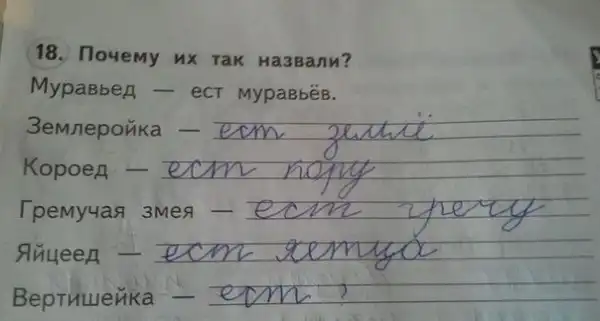 18. Почему их так назвали?
Муравьед — ест муравьёв.
Землеройка — ест землё
Короед — ест кору
Гремучая змея — ест гречу
Яйцеед — ест яетца
Вертишейка — ест ?